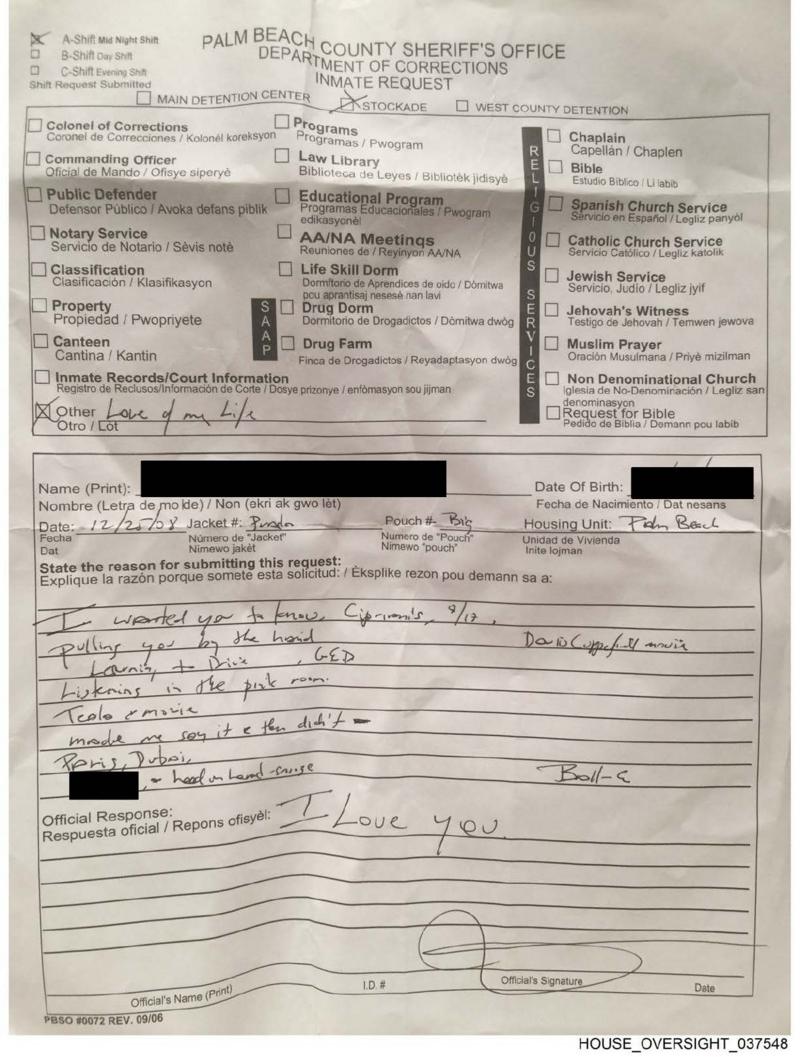 A-Shift Mid Night Shift
B-Shift Day Shift
C-Shift Evening Shift
Shift Request Submitted
PALM BEACH COUNTY SHERIFF'S OFFICE
DEPARTMENT OF CORRECTIONS
INMATE REQUEST
MAIN DETENTION CENTER STOCKADE WEST COUNTY DETENTION
Colonel of Corrections
Coronel de Correcciones / Kolonèl koreksyon
Commanding Officer
Oficial de Mando / Ofisye siperyè
Public Defender
Defensor Público / Avoka defans piblik
Notary Service
Servicio de Notario / Sèvis notè
Classification
Clasificación / Klasifikasyon
Property
Propiedad / Pwopriyete
Canteen
Cantina / Kantin
Inmate Records/Court Information
Registro de Reclusos/Información de Corte / Dosye prizonye / enfòmasyon sou jijman
Other Love of my Life
Otro / Lòt
Programs
Programas / Pwogram
Law Library
Biblioteca de Leyes / Bibliotèk jidisyè
Educational Program
Programas Educacionales / Pwogram
edikasyonèl
AA/NA Meetings
Reuniones de / Reyinyon AA/NA
SAAP
Life Skill Dorm
Dormitorio de Aprendices de oido / Dòmitwa
pou aprantisaj nesesè nan lavi
Drug Dorm
Dormitorio de Drogadictos / Dòmitwa dwòg
Drug Farm
Finca de Drogadictos / Reyadaptasyon dwòg
RELIGIOUS SERVICES
Chaplain
Capellán / Chaplen
Bible
Estudio Bíblico / Li labib
Spanish Church Service
Servicio en Español / Legliz panyòl
Catholic Church Service
Servicio Católico / Legliz katolik
Jewish Service
Servicio, Judio / Legliz jyif
Jehovah's Witness
Testigo de Jehovah / Temwen jewova
Muslim Prayer
Oración Musulmana / Priyè mizilman
Non Denominational Church
Iglesia de No-Denominación / Legliz san
denominasyon
Request for Bible
Pedido de Biblia / Demann pou labib
Name (Print): Date Of Birth:
Nombre (Letra de molde) / Non (ekri ak gwo lèt) Fecha de Nacimiento / Dat nesans
Date: 12/25/08 Jacket #: Prada Pouch #- Big Housing Unit: Palm Beach
Fecha Número de "Jacket" Numero de "Pouch" Unidad de Vivienda
Dat Nimewo jakèt Nimewo "pouch" Inite lojman
State the reason for submitting this request:
Explique la razón porque somete esta solicitud: / Eksplike rezon pou demann sa a:
I wanted you to know, Cipriani's, 8/17,
pulling you by the hand David Copperfield movie
Learning to Drive, GED
Listening in the pink room.
& movie
made me say it & then didn't -
Paris, Dubai,
head on hand Ball-
Official Response: I Love you
Respuesta oficial / Repons ofisyèl:
Official's Name (Print) I.D. # Official's Signature Date
PBSO #0072 REV. 09/06
HOUSE_OVERSIGHT_037548